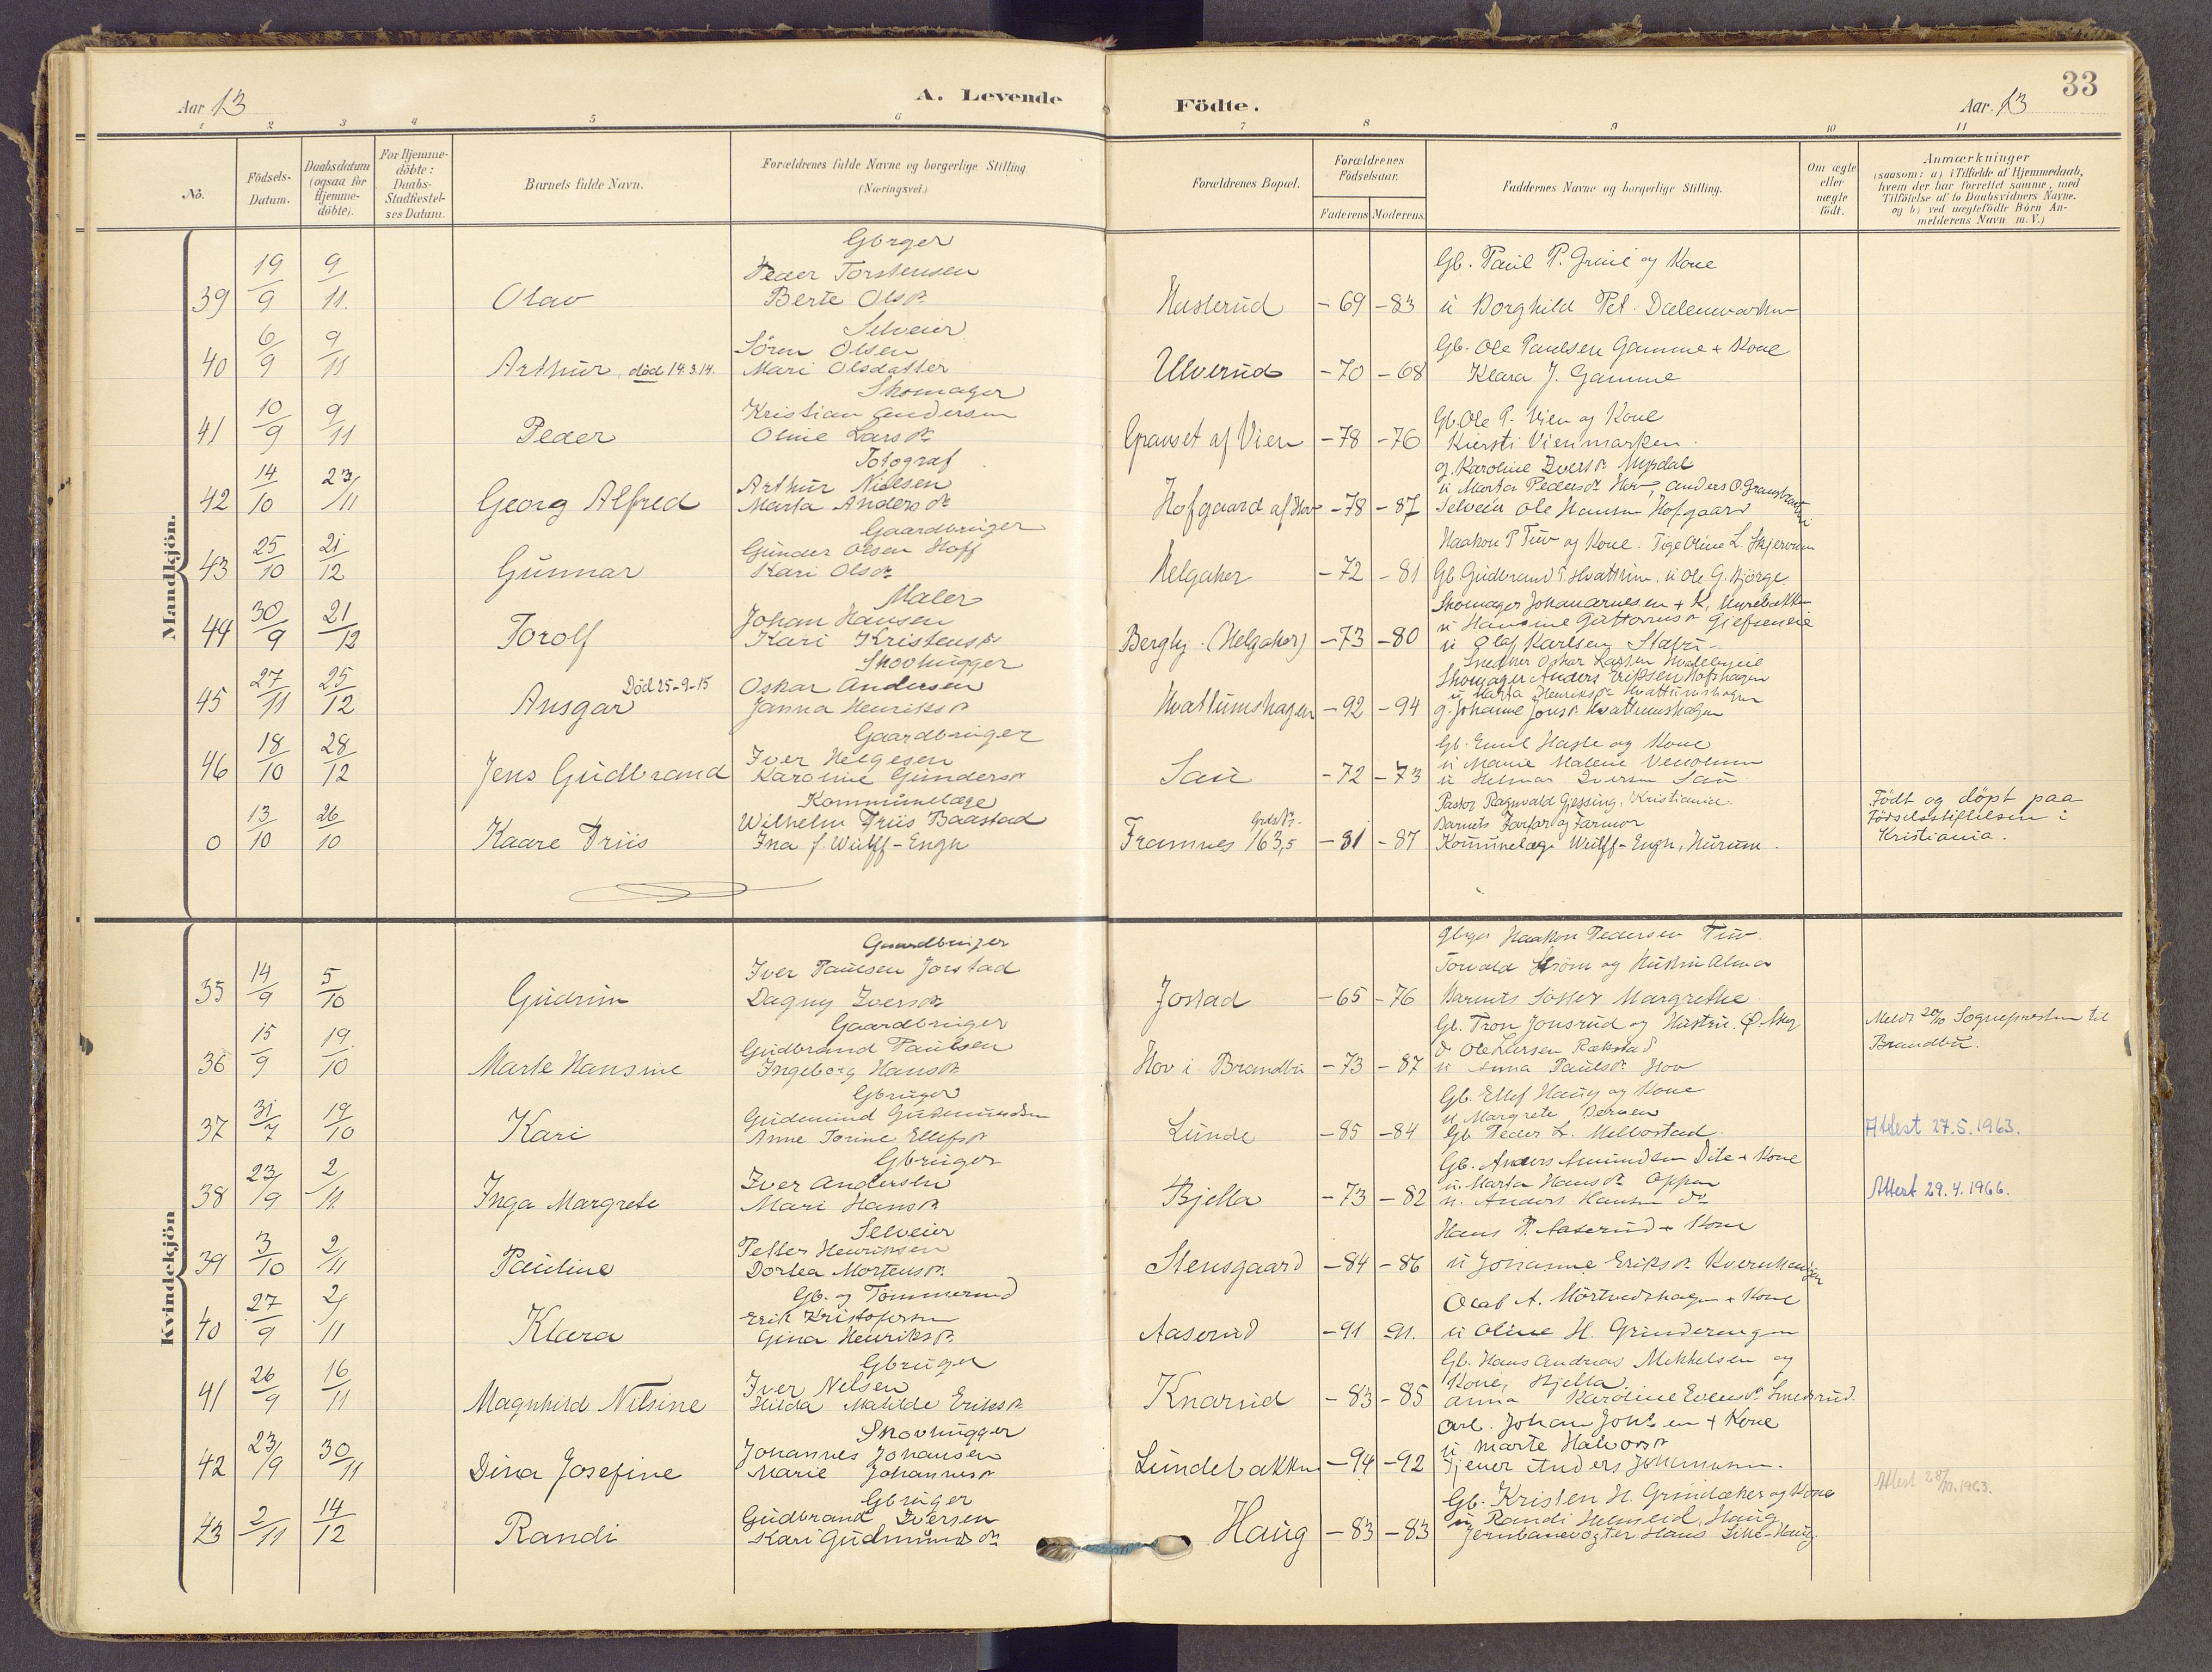 33
Aar 13
A. Levende
Födte.
Aar 13
1 2 3 4 5 6 7 8 9 10 11
No.
Födsels-Datum.
Daabsdatum (ogsaa for Hjemme-döbte).
For Hjemme-döbte: Daabs-Stadfæstel-ses Datum.
Barnets fulde Navn.
Forældrenes fulde Navne og borgerlige Stilling (Næringsvei.)
Forældrenes Bopæl.
Forældrenes Födselsaar.
Faderens Moderens
Faddernes Navne og borgerlige Stilling.
Om ægte eller uægte födt.
Anmærkninger
(saasom: a) i Tilfælde af Hjemmedaab, hvem der har forrettet samme, med Tilföielse af to Daabsvidners Navne, og b) ved uægtefödte Börn An-melderens Navn m. V.)
Mandkjön.
39 19/9 9/11. Olav
Peder Torstensen
Berte Olsdr.
Hasterud -69 -83
Gb. Paul P. Grini og Kone
u Borghild Pet.
40 6/9 9/11 Arthur, död 14.3.14.
Selveier
Sören Olsen
Mari Olsdatter
Ulverud -70 -68
Gb. Ole Paulsen Gamme + Kone
Klara J. Gamme
41 10/9 9/11 Peder
Skomager
Kristian Andersen
Oline Larsdr.
af Vien -78 -76
Gb. Ole P. Vien og Kone
Kiersti Vienmarken.
42 14/10 23/11 Georg Alfred
Fotograf
Arthur Nielsen
Marta Andersdr.
Hofgaard af Hov -78 -87
g. Karoline Iversdr.
u Marta Pedersdr. Hov, Anders O.
Selveier Ole Hansen Hofgaard
43 25/10 21/12 Gunnar
Gaardbruger
Gunder Olsen Hoff
Kari Olsdr.
Helgaker -72 -81
Haakon P. Tuv og Kone. Pige Oline L.
Gb Gudbrand T. Hvattum, u Ole G. Bjørge.
44 30/9 21/12 Torolf
Maler
Johan Hansen
Kari Kristensdr.
Bergly. (Helgaker) -73 -80
u Olaf Karlsen
45 27/11 25/12 Ansgar Död 25-9-15
Skovhugger
Oskar Andersen
Janna Henriksdr.
Hvattumshagen -92 -94
Skomager Anders Eriksen Hofshagen
u Marta Henriksdr. Hvattumshagen
g. Johanne Jonsdr. Hvattumshagen
46 18/10 28/12 Jens Gudbrand
Gaardbruger
Iver Helgesen
Karoline Gundersdr.
Sau -72 -73
Gb. Emil Haste og Kone
u Marie Malene
u Helmar Iversen Sau
0 13/10 26/10 Kaare Friis
Kommunelæge
Wilhelm Friis Baastad
Ina f. Wulff-Engh
Framnes 163,5 -81 -87
Pastor Ragnvald Gjessing, Kristiania.
Barnets Farfar og Farmor
Kommunelæge Wulff-Engh, Hurum.
Født og døpt paa
Fødselsstiftelsen i
Kristiania.
Kvindekjön
35 14/9 5/10 Gudrun
Gaardbruger
Iver Paulsen Jorstad
Dagny Iversdr.
Jostad -65 -76
Haakon Pedersen Tuv.
Torvald Strøm og Hustru Alma
Barnets Søster Margrethe
36 15/9 19/10 Marte Hansine
Gaardbruger
Gudbrand Paulsen
Ingeborg Hansdr.
Hov i Brandbu -73 -87
Gb. Tron Jonsrud og Hustru.
Ole Larsen Rækstad
u Anna Paulsdr. Hov
Meldt 20/10 Sognepresten til
Brandbu.
37 31/7 19/10 Kari
Gbruger
Gudmund Gudmundsen
Anne Torine Ellefsdr.
Lunde -85 -84
Gb. Ellef Haug og Kone
u Margrete
Gb Peder L. Melbostad.
Attest 27.5.1963.
38 23/9 2/11. Inga Margrete
Gbruger
Iver Andersen
Mari Hansdr.
Bjella -73 -82
Gb. Anders Amundsen + Kone
u. Marta Hansdr. Oppen
u. Anders Hansen do
Attest 29.4.1966.
39 3/10 2/11 Pauline
Selveier
Petter Henriksen
Dortea Mortensdr.
Stensgaard -84 -86
Hans P. Aaserud + Kone
u Johanne Eriksdr. Kvernhaugen
40 27/9 2/11 Klara
Gb. og Tømmermd
Erik Kristofersen
Gina Henriksdr.
Aaserud -91 -91.
Olaf A. Mörtvedshagen + Kone
u Oline H. Grinderengen
41 26/9 16/11 Magnhild Nilsine
Gbruger
Iver Nilsen
Hilda Matilde Eriksdr.
Knarud -83 -85
Gb. Hans Andreas Mikkelsen og
Kone, Bjella
Anna Karoline Evensdr.
42 23/9 30/11 Dina Josefine
Skovhugger
Johannes Johansen
Marie Johannesdr.
Lundebakken -94 -92
Arb. Johan Johnsen + Kone
u Marte Halvorsdr
Tjener Anders Johannesen.
43 2/11 14/12 Randi
Gbruger
Gudbrand Iversen
Kari Gudmundsdr.
Haug -83 -83
Gb. Kristen H. Grindaker og Kone
u Randi Helmeid, Haug
Jernbanevogter Hans Lille-Haug
Attest 28/10.1963.